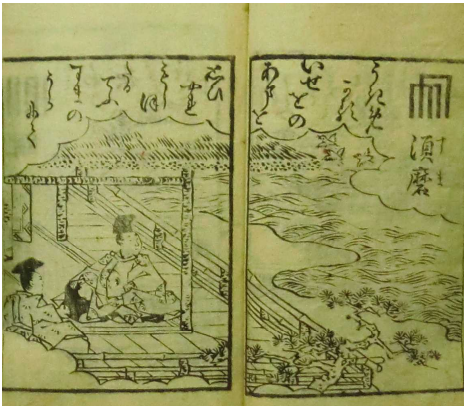 須磨
すま
うきめ
かる
いせをの
あまを
思ひ
やれ
もしほ
たる
てふ
すまの
うら
にて